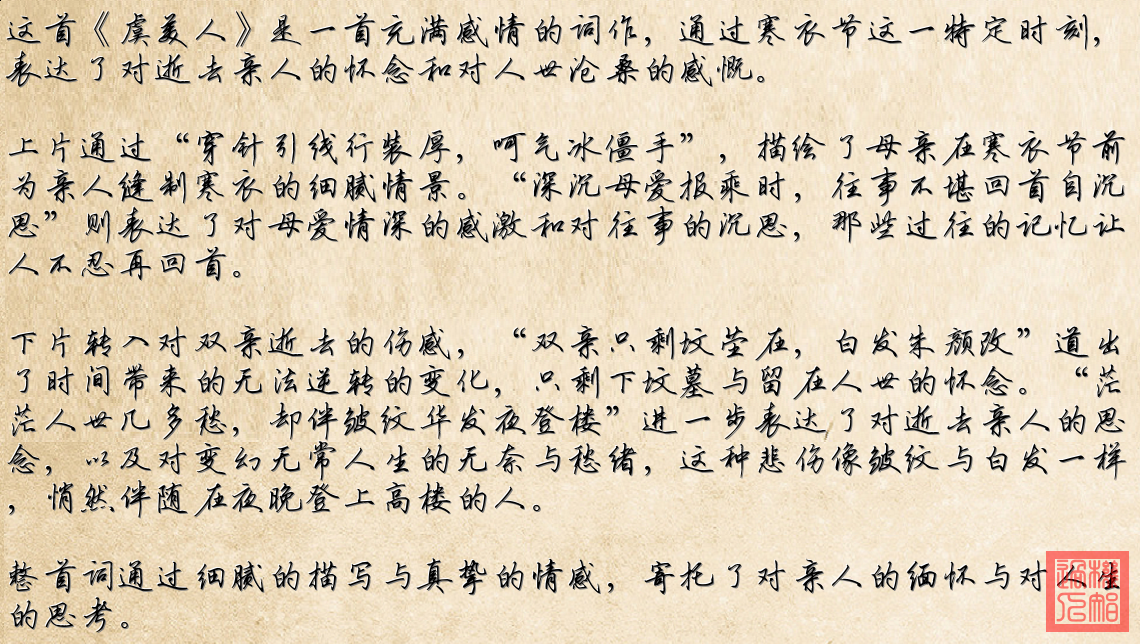 这首《虞美人》是一首充满感情的词作，通过寒衣节这一特定时刻，
表达了对逝去亲人的怀念和对人世沧桑的感慨。
上片通过“穿针引线行装厚，呵气冰僵手”，描绘了母亲在寒衣节前
为亲人缝制寒衣的细腻情景。“深沉母爱报乘时，往事不堪回首自沉
思”则表达了对母爱情深的感激和对往事的沉思，那些过往的记忆让
人不忍再回首。
下片转入对双亲逝去的伤感，“双亲只剩坟茔在，白发朱颜改”道出
了时间带来的无法逆转的变化，只剩下坟墓与留在人世的怀念。“茫
茫人世几多愁，却伴皱纹华发夜登楼”进一步表达了对逝去亲人的思
念，以及对变幻无常人生的无奈与愁绪，这种悲伤像皱纹与白发一样
，悄然伴随在夜晚登上高楼的人。
整首词通过细腻的描写与真挚的情感，寄托了对亲人的缅怀与对人生
的思考。